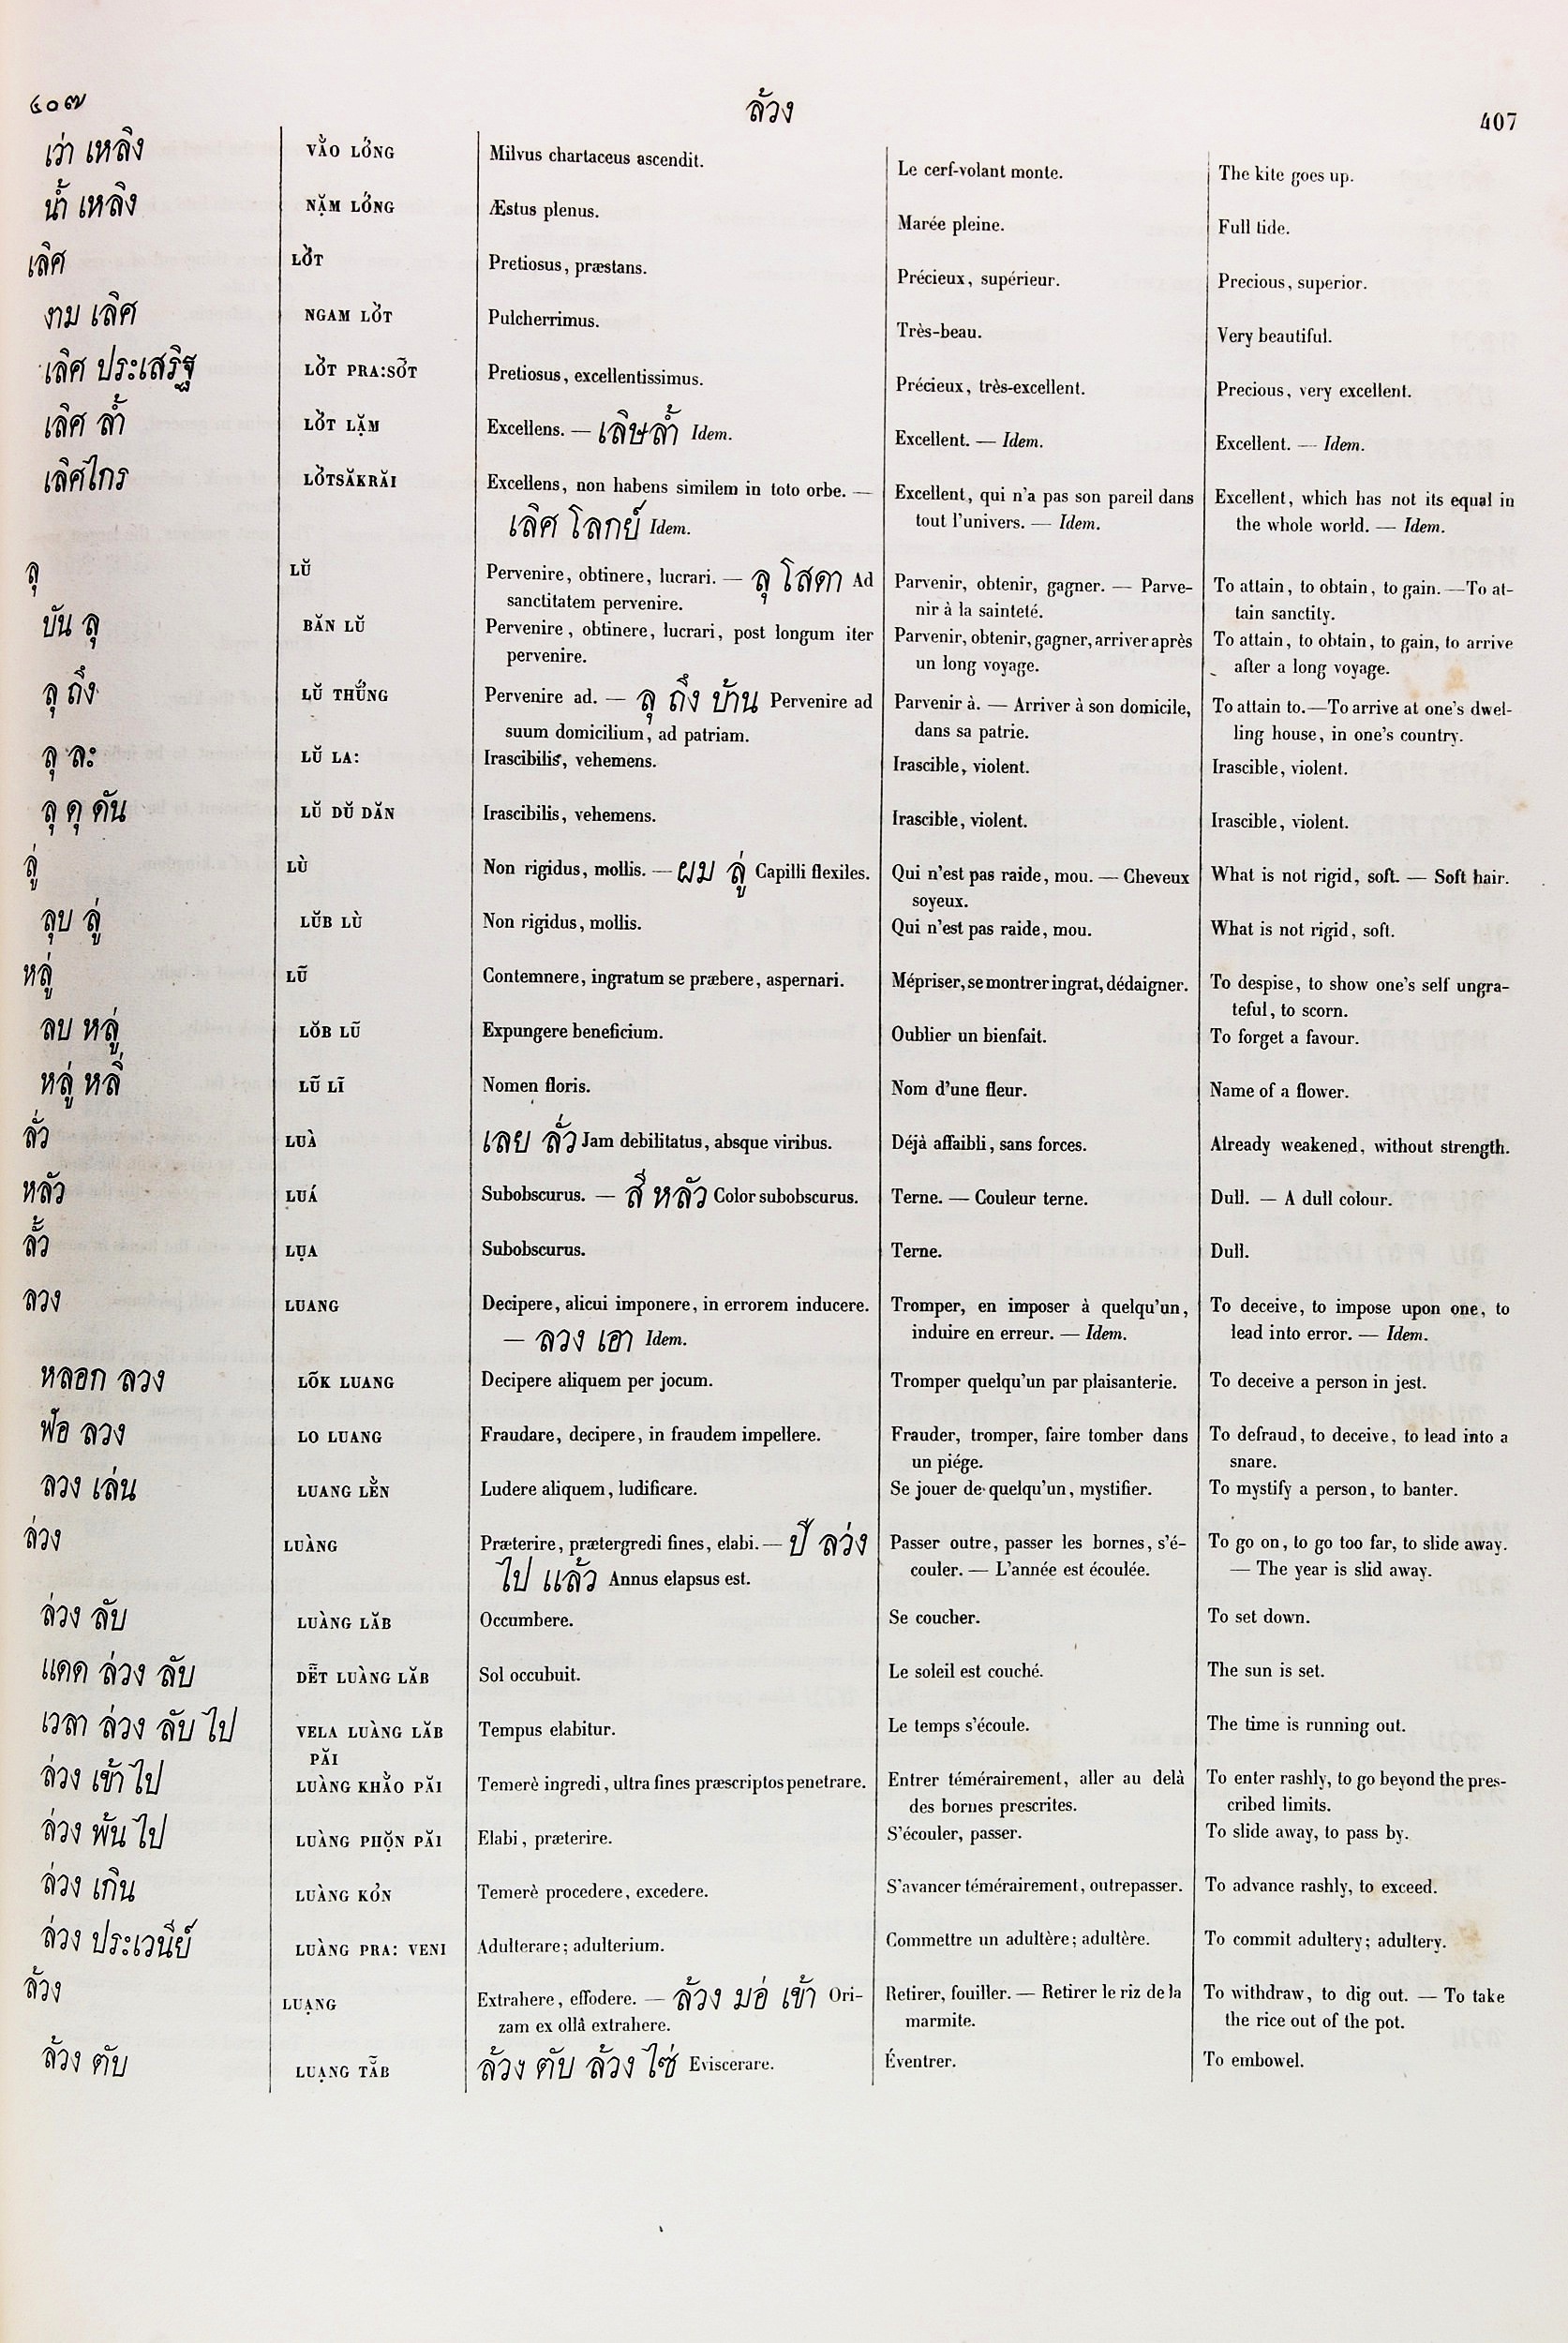 ๔๐๗ ล้วง 407
เว่า เหลิง VẰO LỚNG Milvus chartaceus ascendit. Le cerf-volant monte. The kite goes up.
น้ำ เหลิง NẶM LỚNG Æstus plenus. Marée pleine. Full tide.
เลิศ LỞT Pretiosus, præstans. Précieux, supérieur. Precious, superior.
งาม เลิศ NGAM LỞT Pulcherrimus. Très-beau. Very beautiful.
เลิศ ประเสริฐ LỞT PRA:SỞT Pretiosus, excellentissimus. Précieux, très-excellent. Precious, very excellent.
เลิศ ล้ำ LỞT LẶM Excellens. — เลิษล้ำ Idem. Excellent. — Idem. Excellent. — Idem.
เลิศไกร LỞTSĂKRĂI Excellens, non habens similem in toto orbe. — Excellent, qui n'a pas son pareil dans Excellent, which has not its equal in
เลิศ โลกย์ Idem. tout l'univers. — Idem. the whole world. — Idem.
ลุ LŬ Pervenire, obtinere, lucrari. — ลุ โสดา Ad Parvenir, obtenir, gagner. — Parve- To attain, to obtain, to gain. — To at-
sanctitatem pervenire. nir à la sainteté. tain sanctity.
บัน ลุ BĂN LŬ Pervenire, obtinere, lucrari, post longum iter Parvenir, obtenir, gagner, arriver après To attain, to obtain, to gain, to arrive
pervenire. un long voyage. after a long voyage.
ลุ ถึง LŬ THỨNG Pervenire ad. — ลุ ถึง บ้าน Pervenire ad Parvenir à. — Arriver à son domicile, To attain to. — To arrive at one's dwel-
suum domicilium, ad patriam. dans sa patrie. ling house, in one's country.
ลุ ละ LŬ LA: Irascibilis, vehemens. Irascible, violent. Irascible, violent.
ลุ ดุ ดัน LŬ DŬ DĂN Irascibilis, vehemens. Irascible, violent. Irascible, violent.
ลู่ LÙ Non rigidus, mollis. — ผม ลู่ Capilli flexiles. Qui n'est pas raide, mou. — Cheveux What is not rigid, soft. — Soft hair.
soyeux.
ลุบ ลู่ LŬB LÙ Non rigidus, mollis. Qui n'est pas raide, mou. What is not rigid, soft.
หลู่ LŨ Contemnere, ingratum se præbere, aspernari. Mépriser, se montrer ingrat, dédaigner. To despise, to show one's self ungra-
teful, to scorn.
ลบ หลู่ LŎB LŨ Expungere beneficium. Oublier un bienfait. To forget a favour.
หลู่ หลี่ LŨ LĨ Nomen floris. Nom d'une fleur. Name of a flower.
ลั่ว LUÀ เลย ลั่ว Jam debilitatus, absque viribus. Déjà affaibli, sans forces. Already weakened, without strength.
หลัว LUÁ Subobscurus. — สี หลัว Color subobscurus. Terne. — Couleur terne. Dull. — A dull colour.
ลั้ว LỤA Subobscurus. Terne. Dull.
ลวง LUANG Decipere, alicui imponere, in errorem inducere. Tromper, en imposer à quelqu'un, To deceive, to impose upon one, to
— ลวง เอา Idem. induire en erreur. — Idem. lead into error. — Idem.
หลอก ลวง LÕK LUANG Decipere aliquem per jocum. Tromper quelqu'un par plaisanterie. To deceive a person in jest.
ฬ่อ ลวง LO LUANG Fraudare, decipere, in fraudem impellere. Frauder, tromper, faire tomber dans To defraud, to deceive, to lead into a
un piége. snare.
ลวง เล่น LUANG LỀN Ludere aliquem, ludificare. Se jouer de quelqu'un, mystifier. To mystify a person, to banter.
ล่วง LUÀNG Præterire, prætergredi fines, elabi. — ปี ลว่ง Passer outre, passer les bornes, s'é- To go on, to go too far, to slide away.
ไป แล้ว Annus elapsus est. couler. — L'année est écoulée. — The year is slid away.
ล่วง ลับ LUÀNG LĂB Occumbere. Se coucher. To set down.
แดด ล่วง ลับ DẼT LUÀNG LĂB Sol occubuit. Le soleil est couché. The sun is set.
เวลา ล่วง ลับ ไป VELA LUÀNG LĂB Tempus elabitur. Le temps s'écoule. The time is running out.
PĂI
ล่วง เข้า ไป LUÀNG KHẰO PĂI Temerè ingredi, ultra fines præscriptos penetrare. Entrer témérairement, aller au delà To enter rashly, to go beyond the pres-
des bornes prescrites. cribed limits.
ล่วง พ้น ไป LUÀNG PHỘN PĂI Elabi, præterire. S'écouler, passer. To slide away, to pass by.
ล่วง เกิน LUÀNG KỎN Temerè procedere, excedere. S'avancer témérairement, outrepasser. To advance rashly, to exceed.
ล่วง ประเวนีย์ LUÀNG PRA: VENI Adulterare; adulterium. Commettre un adultère; adultère. To commit adultery; adultery.
ล้วง LUẠNG Extrahere, effodere. — ล้วง มอ่ เข้า Ori- Retirer, fouiller. — Retirer le riz de la To withdraw, to dig out. — To take
zam ex ollâ extrahere. marmite. the rice out of the pot.
ล้วง ตับ LUẠNG TẴB ล้วง ตับ ล้วง ไซ่ Eviscerare. Éventrer. To embowel.